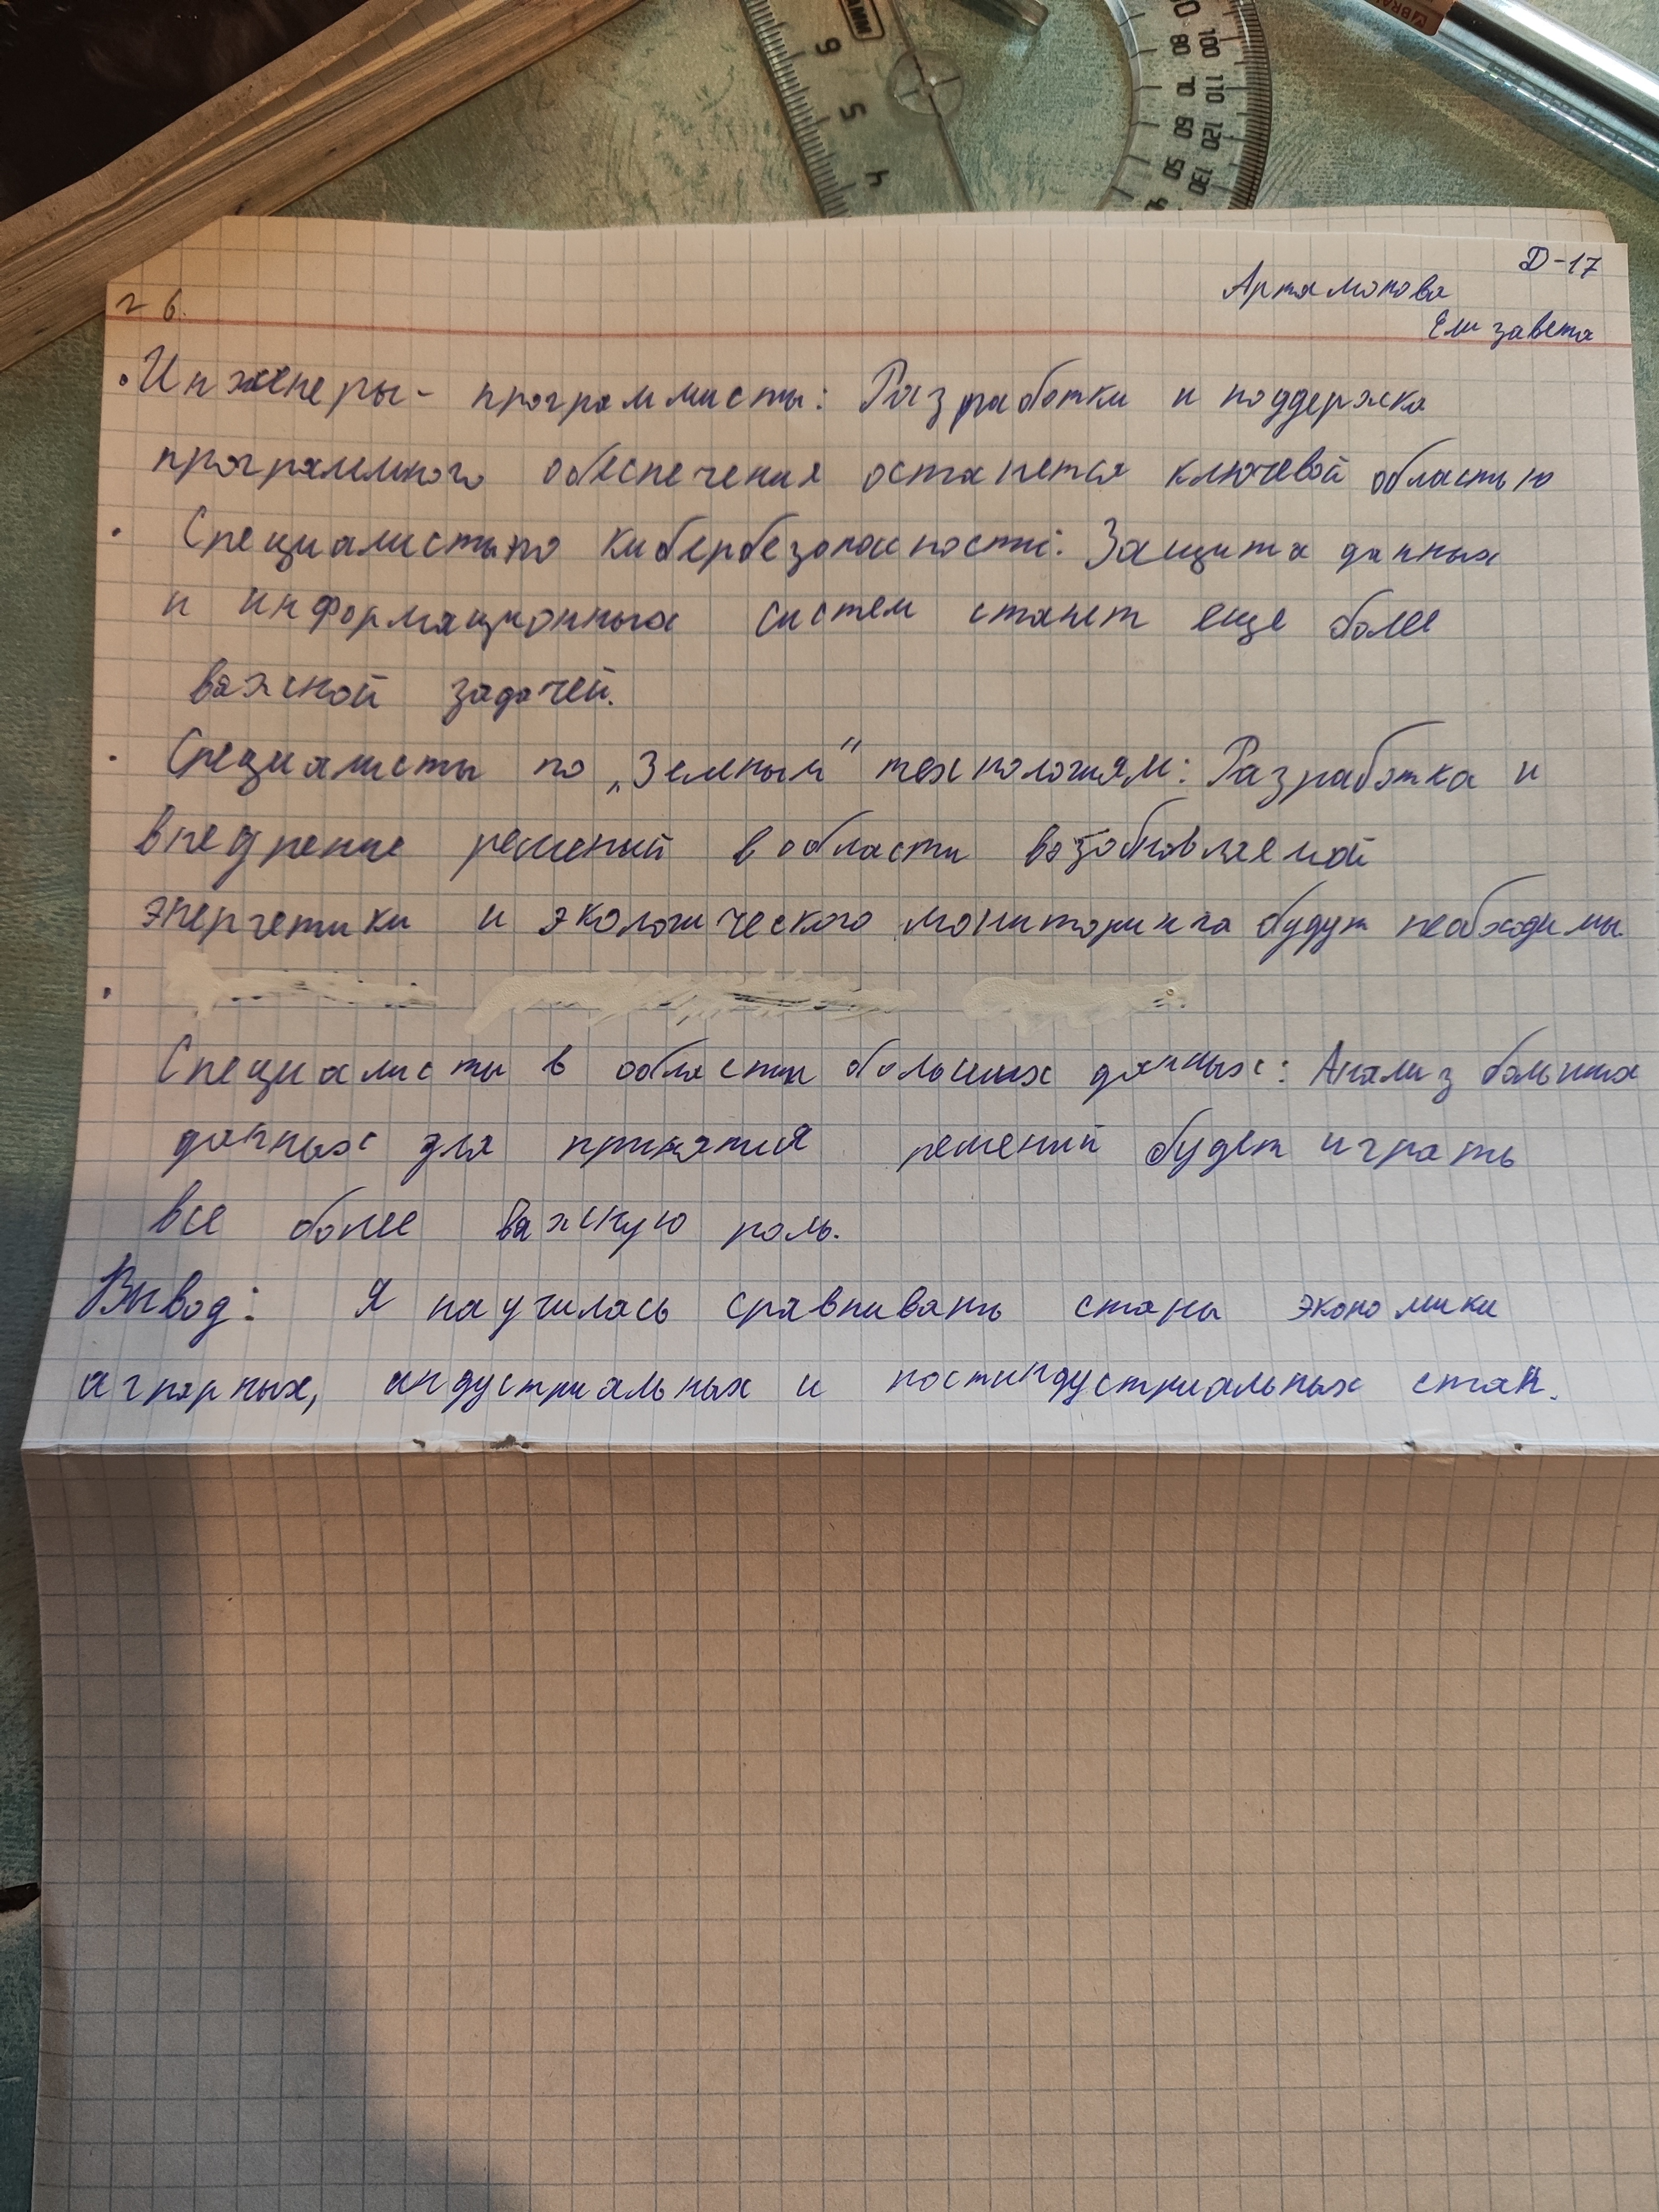 Д-17
Артамонова
Елизавета
г 6.
• Инженеры - программисты: Разработки и поддержка
программного обеспечения останется ключевой областью
• Специалисты по кибербезопасности: Защита данных
и информационных систем станет еще более
важной задачей.
• Специалисты по „Земным" технологиям: Разработка и
внедрение решений в области возобновляемой
энергетики и экологического мониторинга будут необходимы.
•
Специалисты в области больших данных: Анализ больших
данных для принятия решений будет играть
все более важную роль.
Вывод: Я научилась сравнивать станы экономики
аграрных, индустриальных и постиндустриальных стан.
6
5
4
80 100
70 110
60 120
50 130